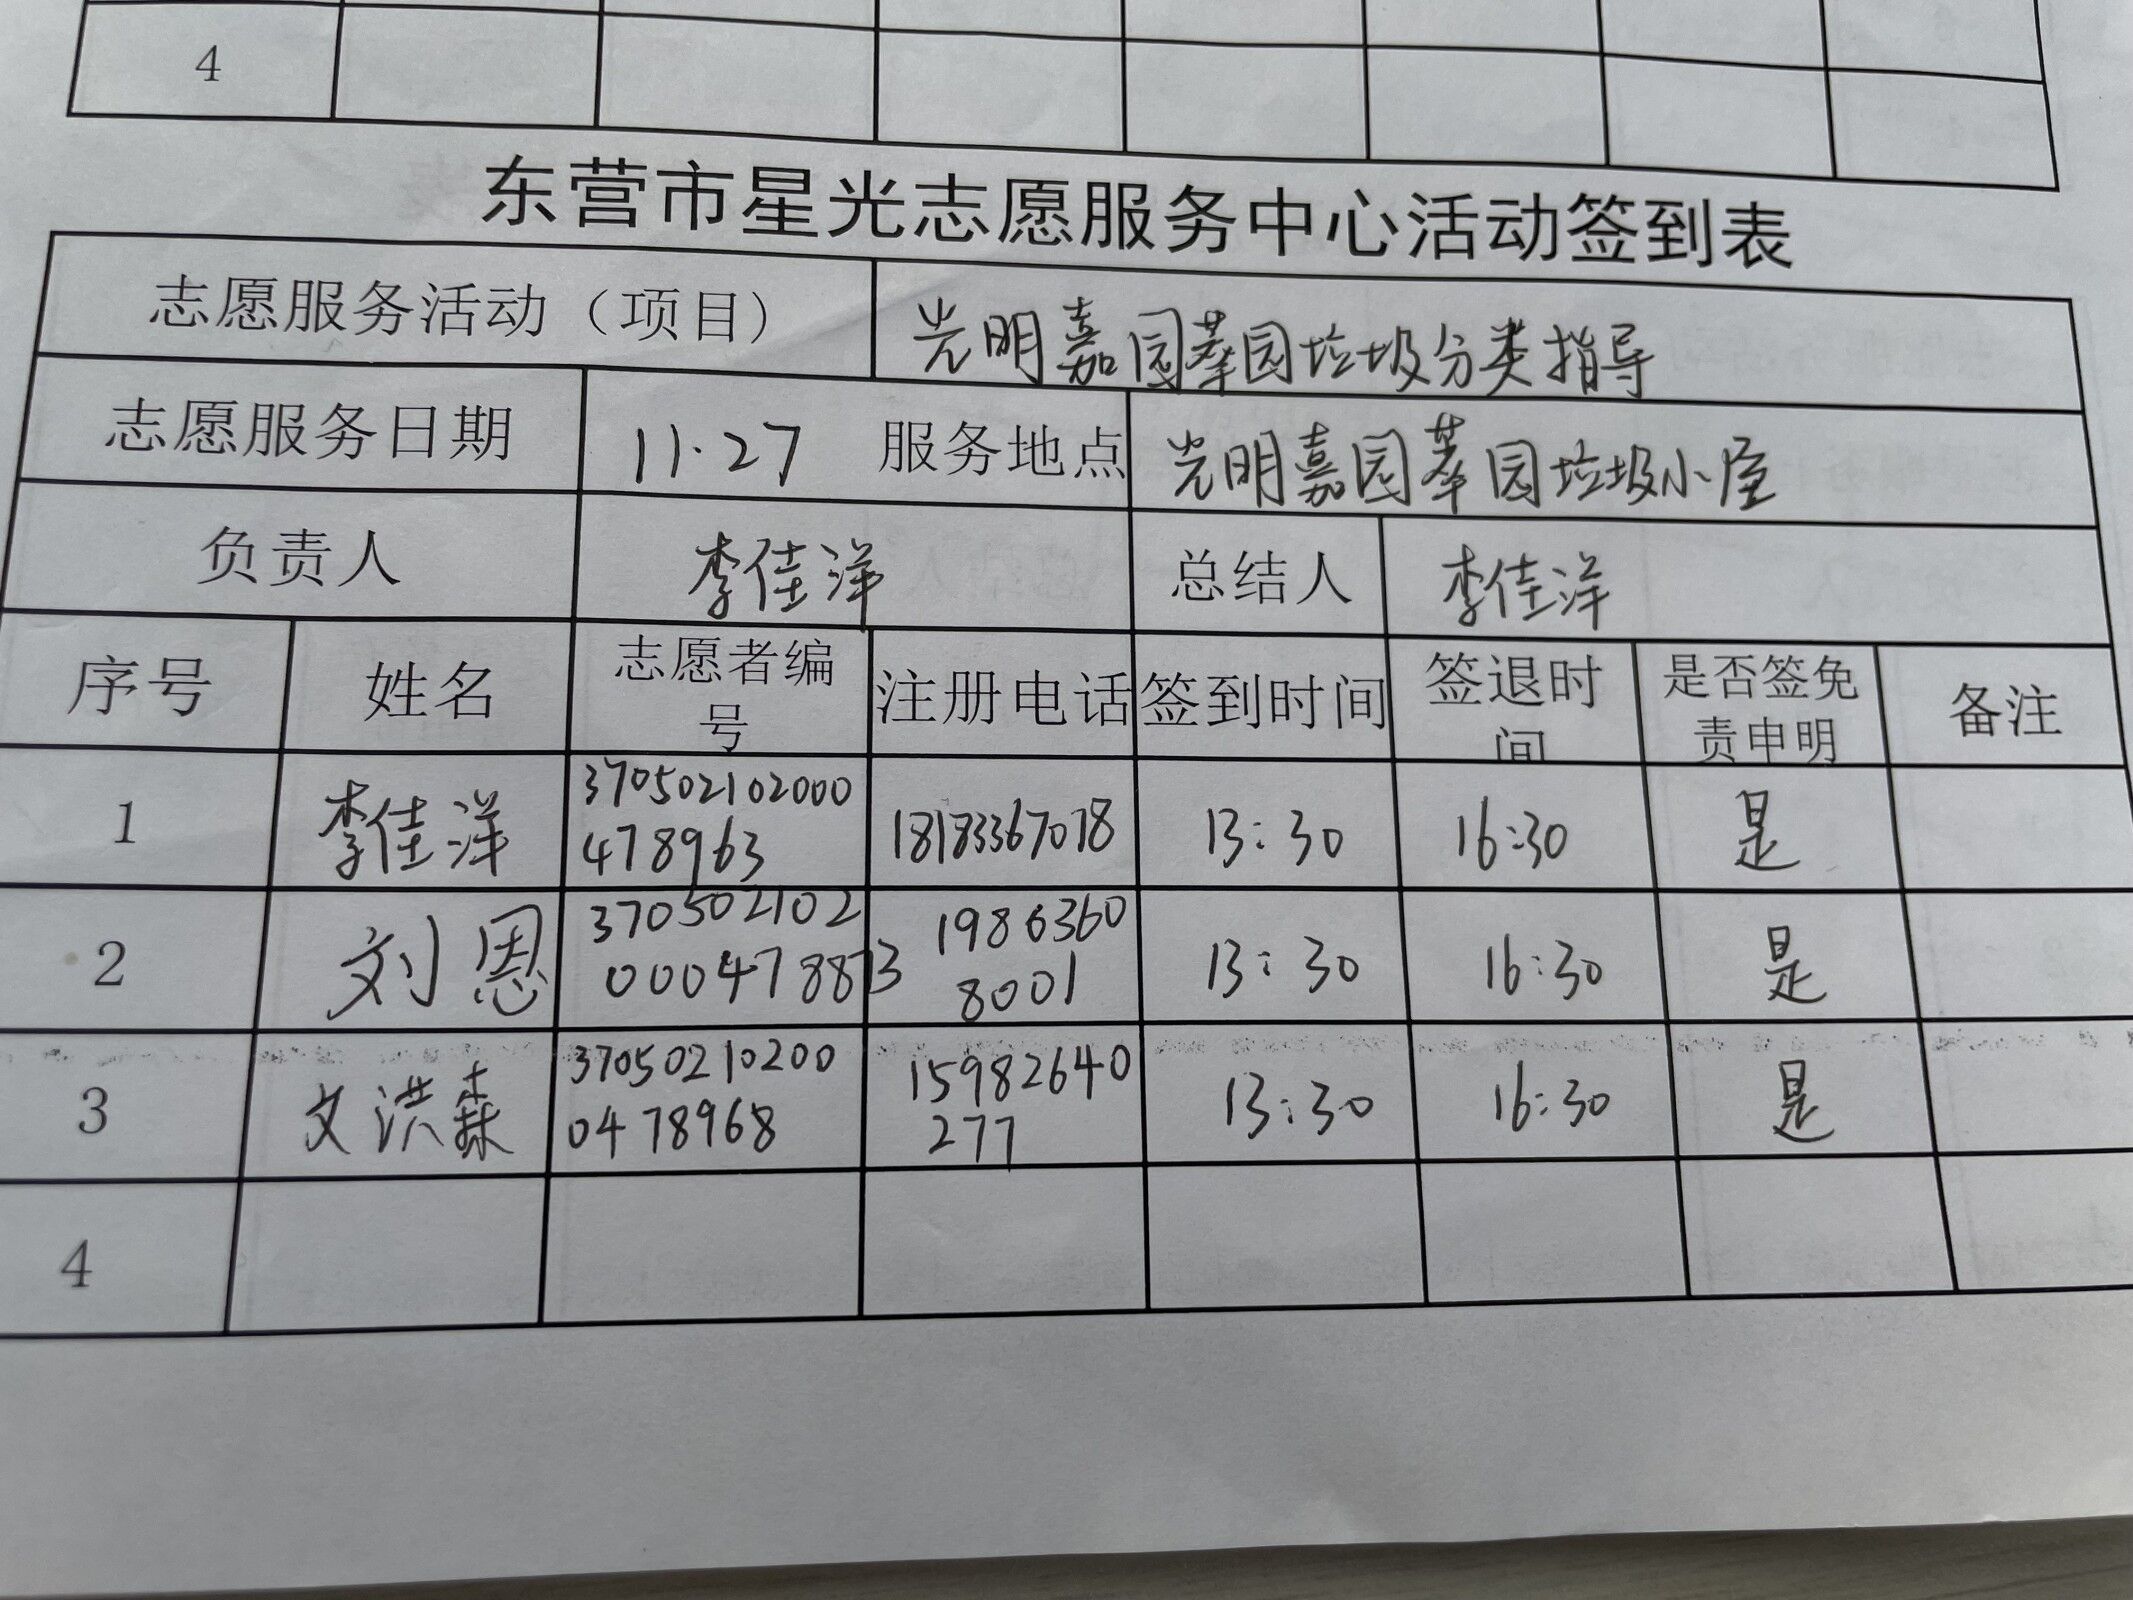 4
东营市星光志愿服务中心活动签到表
志愿服务活动（项目） 光明嘉园萃园垃圾分类指导
志愿服务日期 11.27 服务地点 光明嘉园萃园垃圾小屋
负责人 李佳洋 总结人 李佳洋
序号 姓名 志愿者编号 注册电话 签到时间 签退时间 是否签免责申明 备注
1 李佳洋 370502102000478963 18183367078 13:30 16:30 是
2 刘恩 370502102000478873 19863608001 13:30 16:30 是
3 文洪森 370502102000478968 15982640277 13:30 16:30 是
4